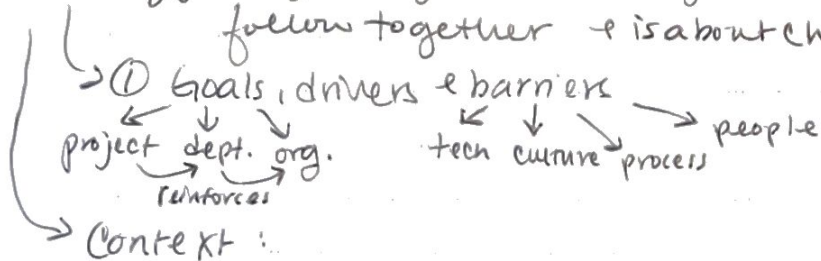 follow together & is about ch
① Goals, drivers & barriers
project dept. org. tech culture process people
reinforces
Context :